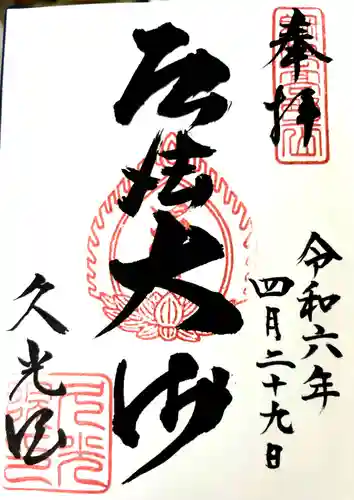 奉拝
令和六年
四月二十九日
弘法大師
久光山